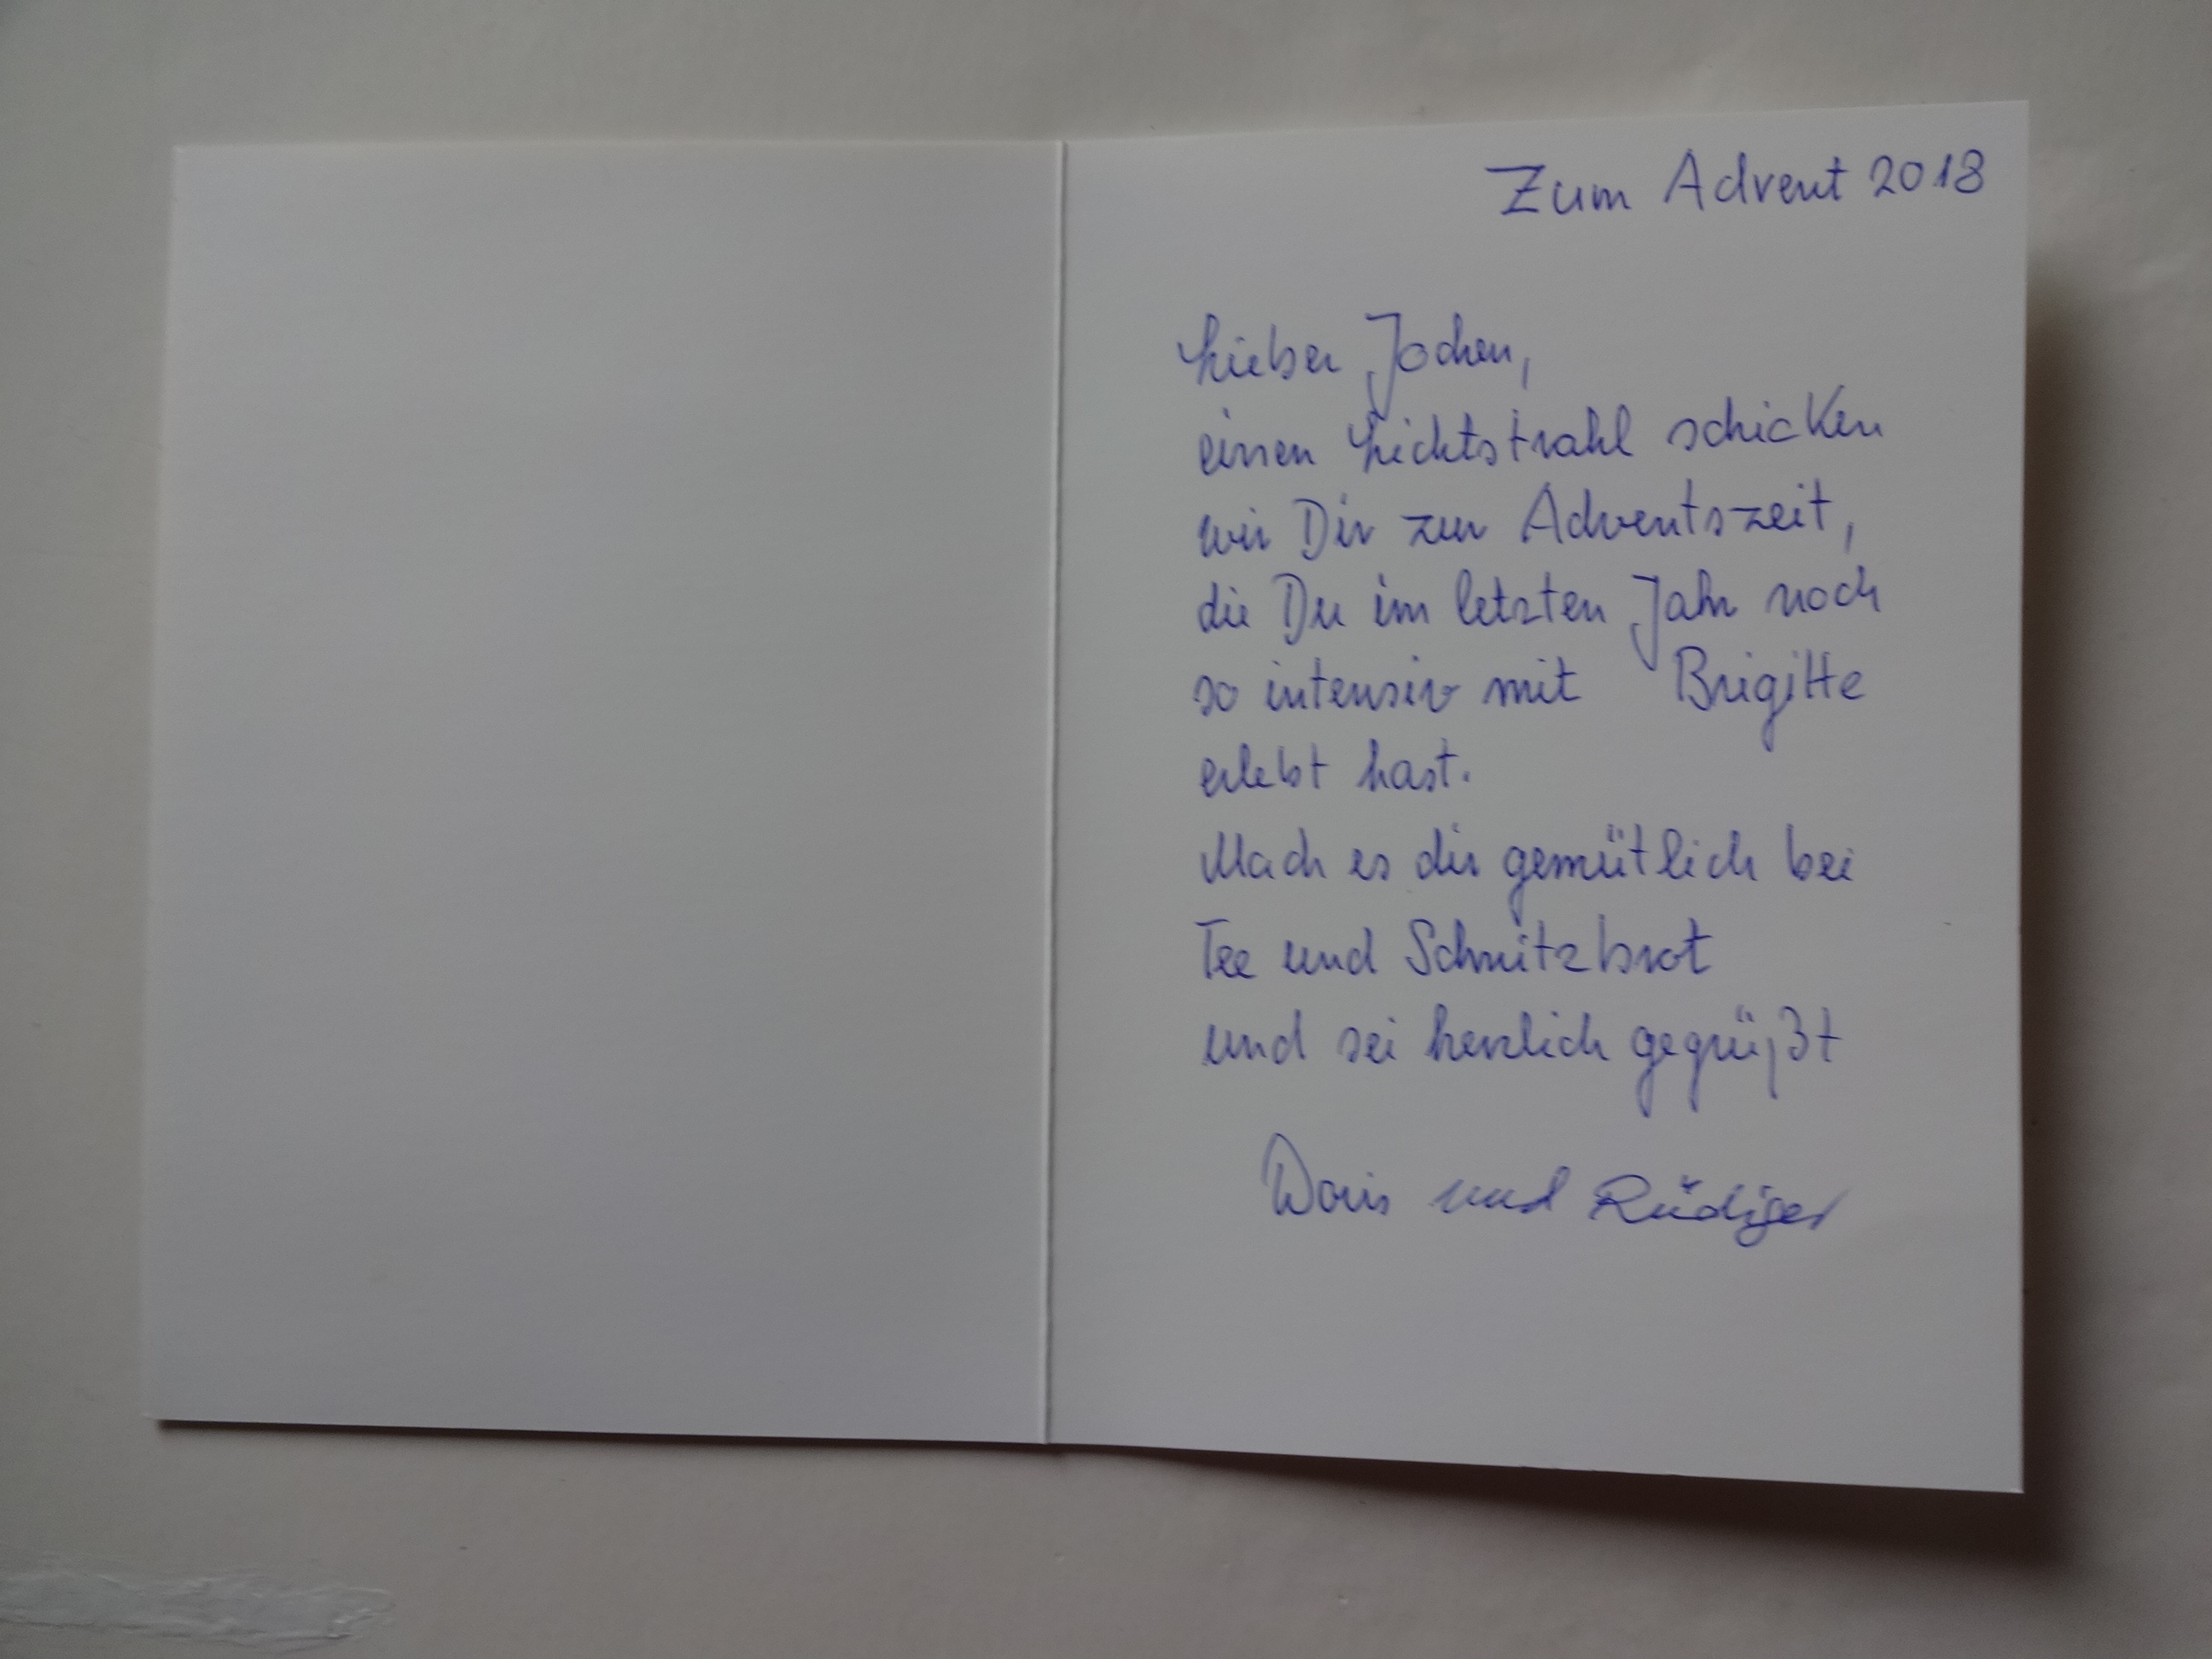 Zum Advent 2018
Lieber Jochen,
einen Lichtstrahl schicken
wir Dir zur Adventszeit,
die Du im letzten Jahr noch
so intensiv mit Brigitte
erlebt hast.
Mach es dir gemütlich bei
Tee und Schnitzbrot
und sei herzlich gegrüßt
Doris und Rüdiger